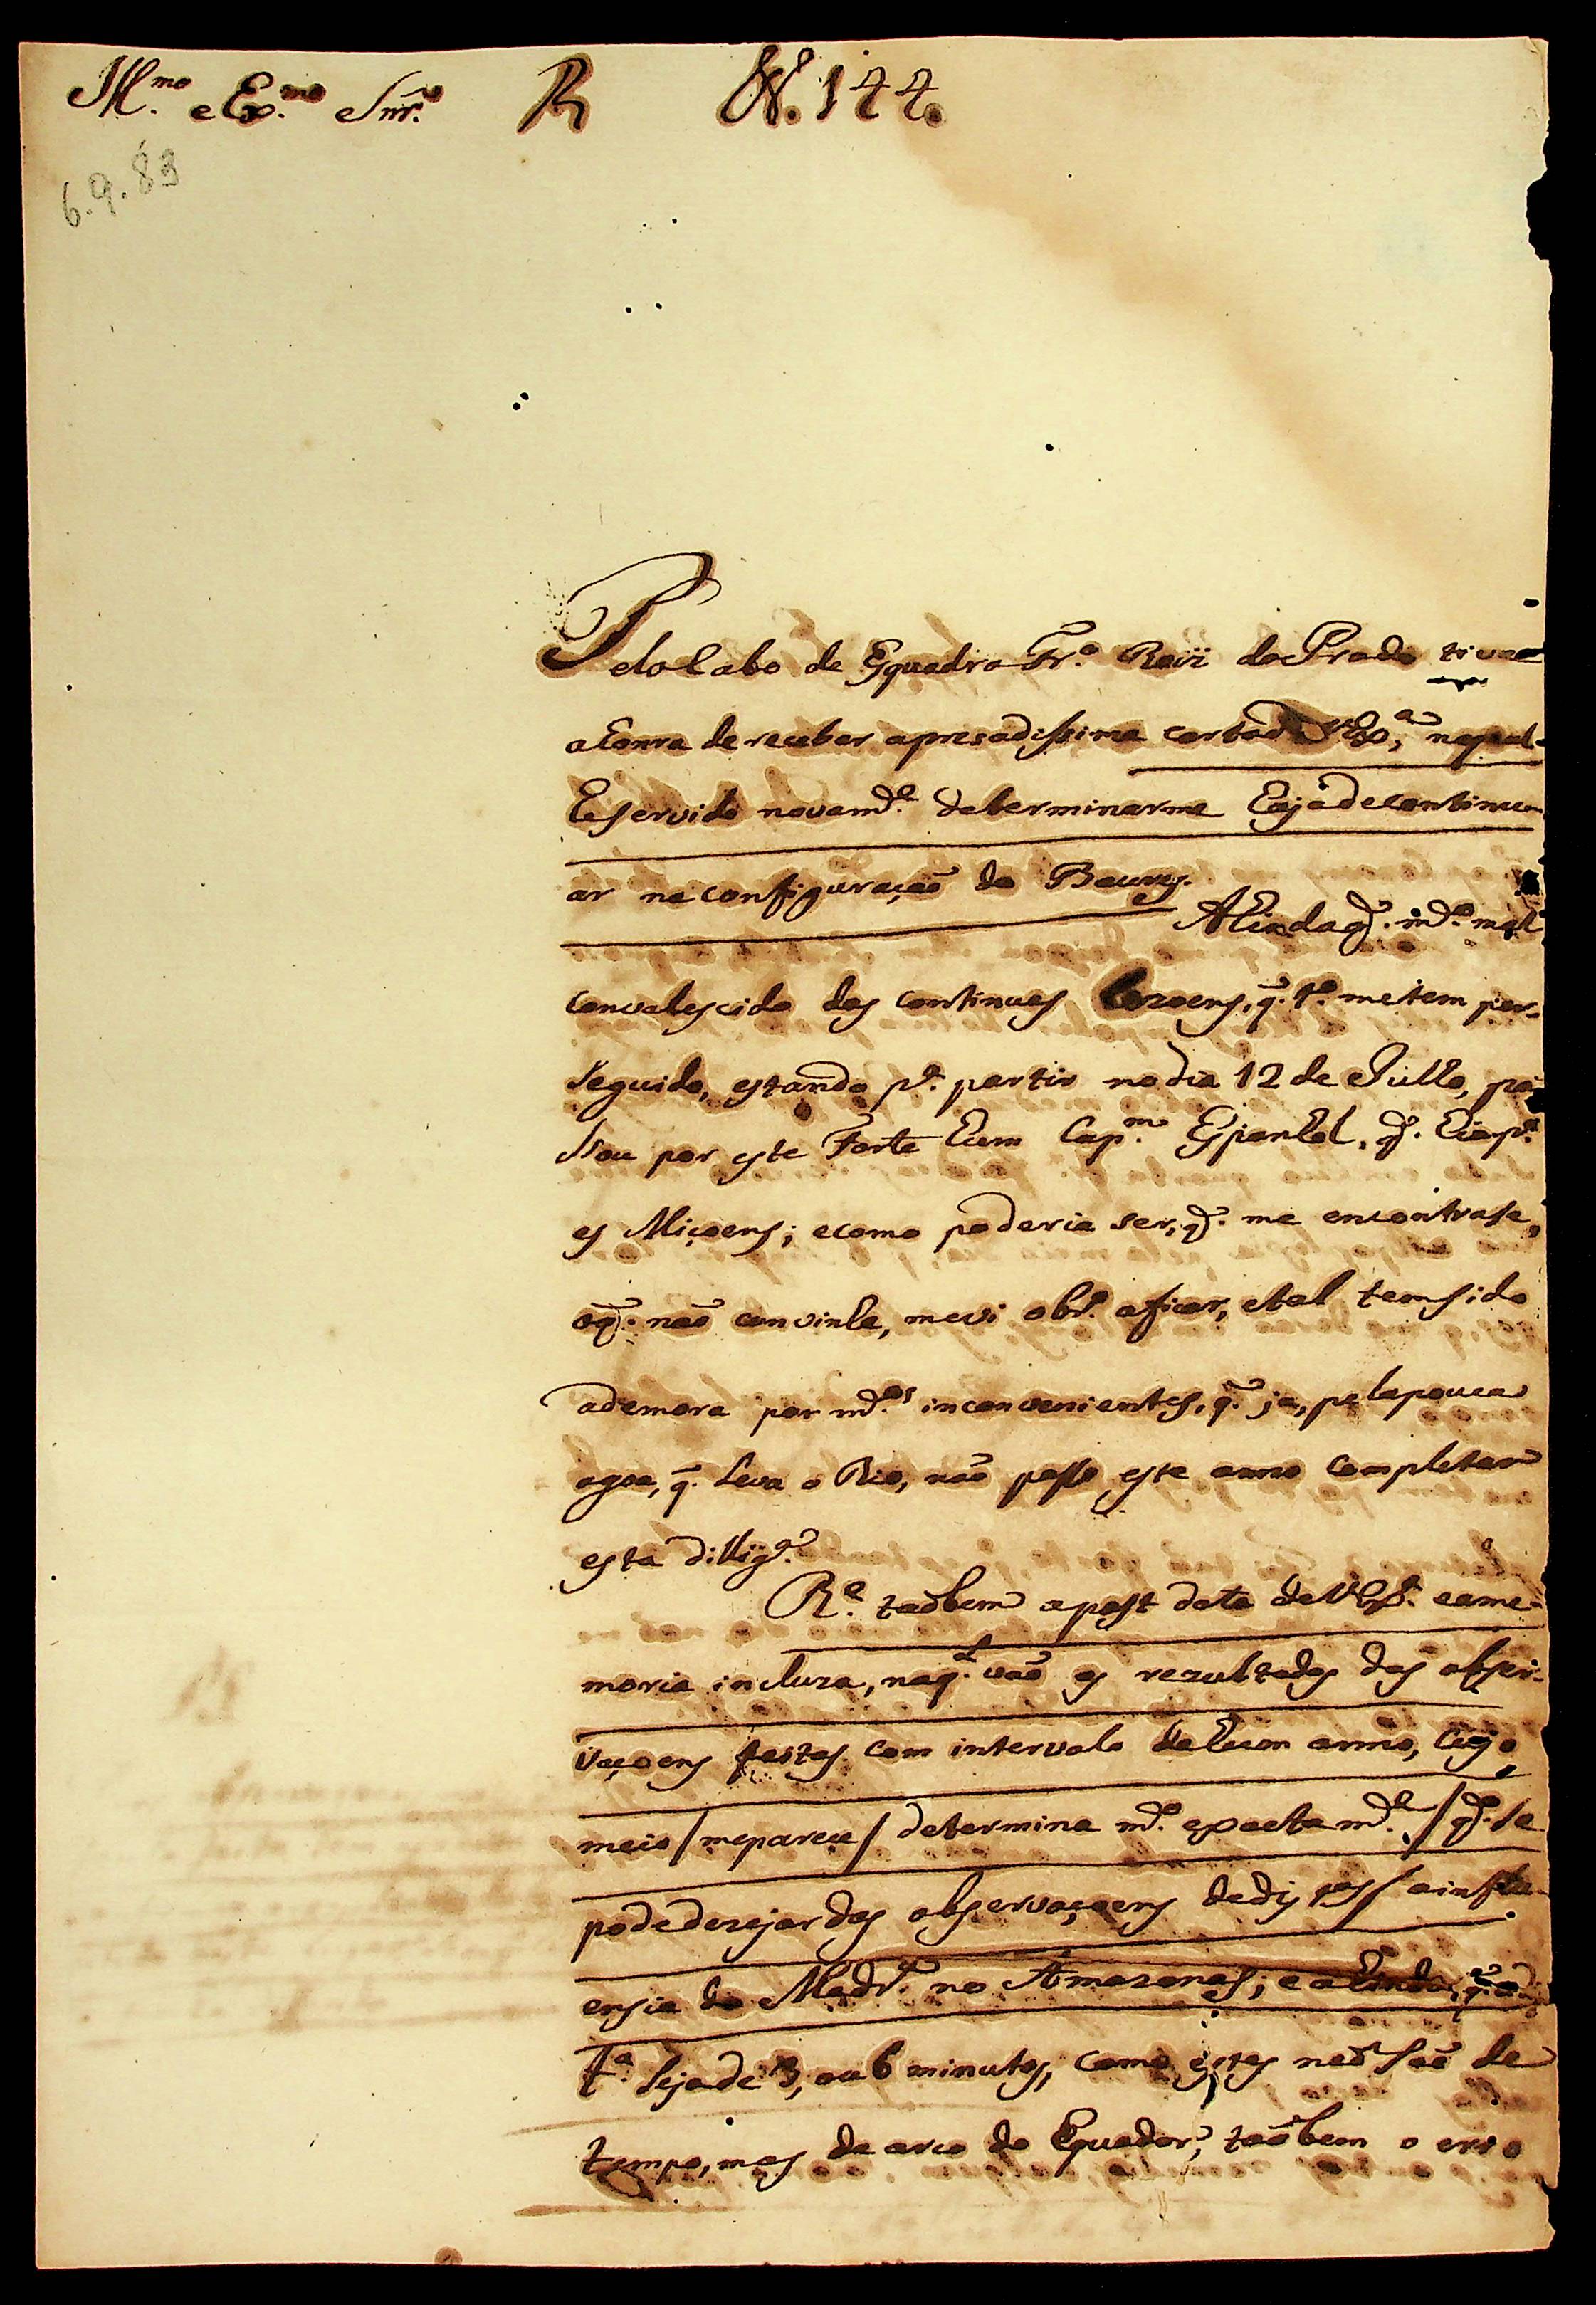 Ill.mo e Ex.mo Snr.
R
N. 144.
6.9.83
Pelo Cabo de Esquadra Fr.o Roiz do Prado tive
a Eonra de receber a presadissima carta de V Ex.a, na qual
E servido novamd.e determinarme Eaja de continu-
ar na configuração do Baures.
AEinda q. md.o mal
convalescido das continuas q. t.o me tem per-
seguido, estando p.a partir no dia 12 de JulEo, pa-
sou por este Forte Eum Cap.m EspanEol, q. Eia p.a
as Miçoens; e como poderia ser, q. me encontrase,
o q. não convinEa, me vi obr.o a ficar, e tal tem sido
a demora por md.os inconvenientes, q. ja, pela pouca
agoa, q. leva o Rio, não posso este anno completar
esta dillig.a
R.e taõbem a post data de V Ex.a e a me-
moria incluza, na q.l vão os rezultados das obser-
vaçoens feitas com intervalo de Eum anno, cujo
meio /me parece/ determina md.o exactamd.e / q.to se
pode desejar das observaçoens destas / a influ-
encia do Madr.a no Amazonas; e aEinda, q. a
t.a seja de 3, ou 6 minutos, como estes não são de
tempo, mas de arco do Equador, taõbem o erro